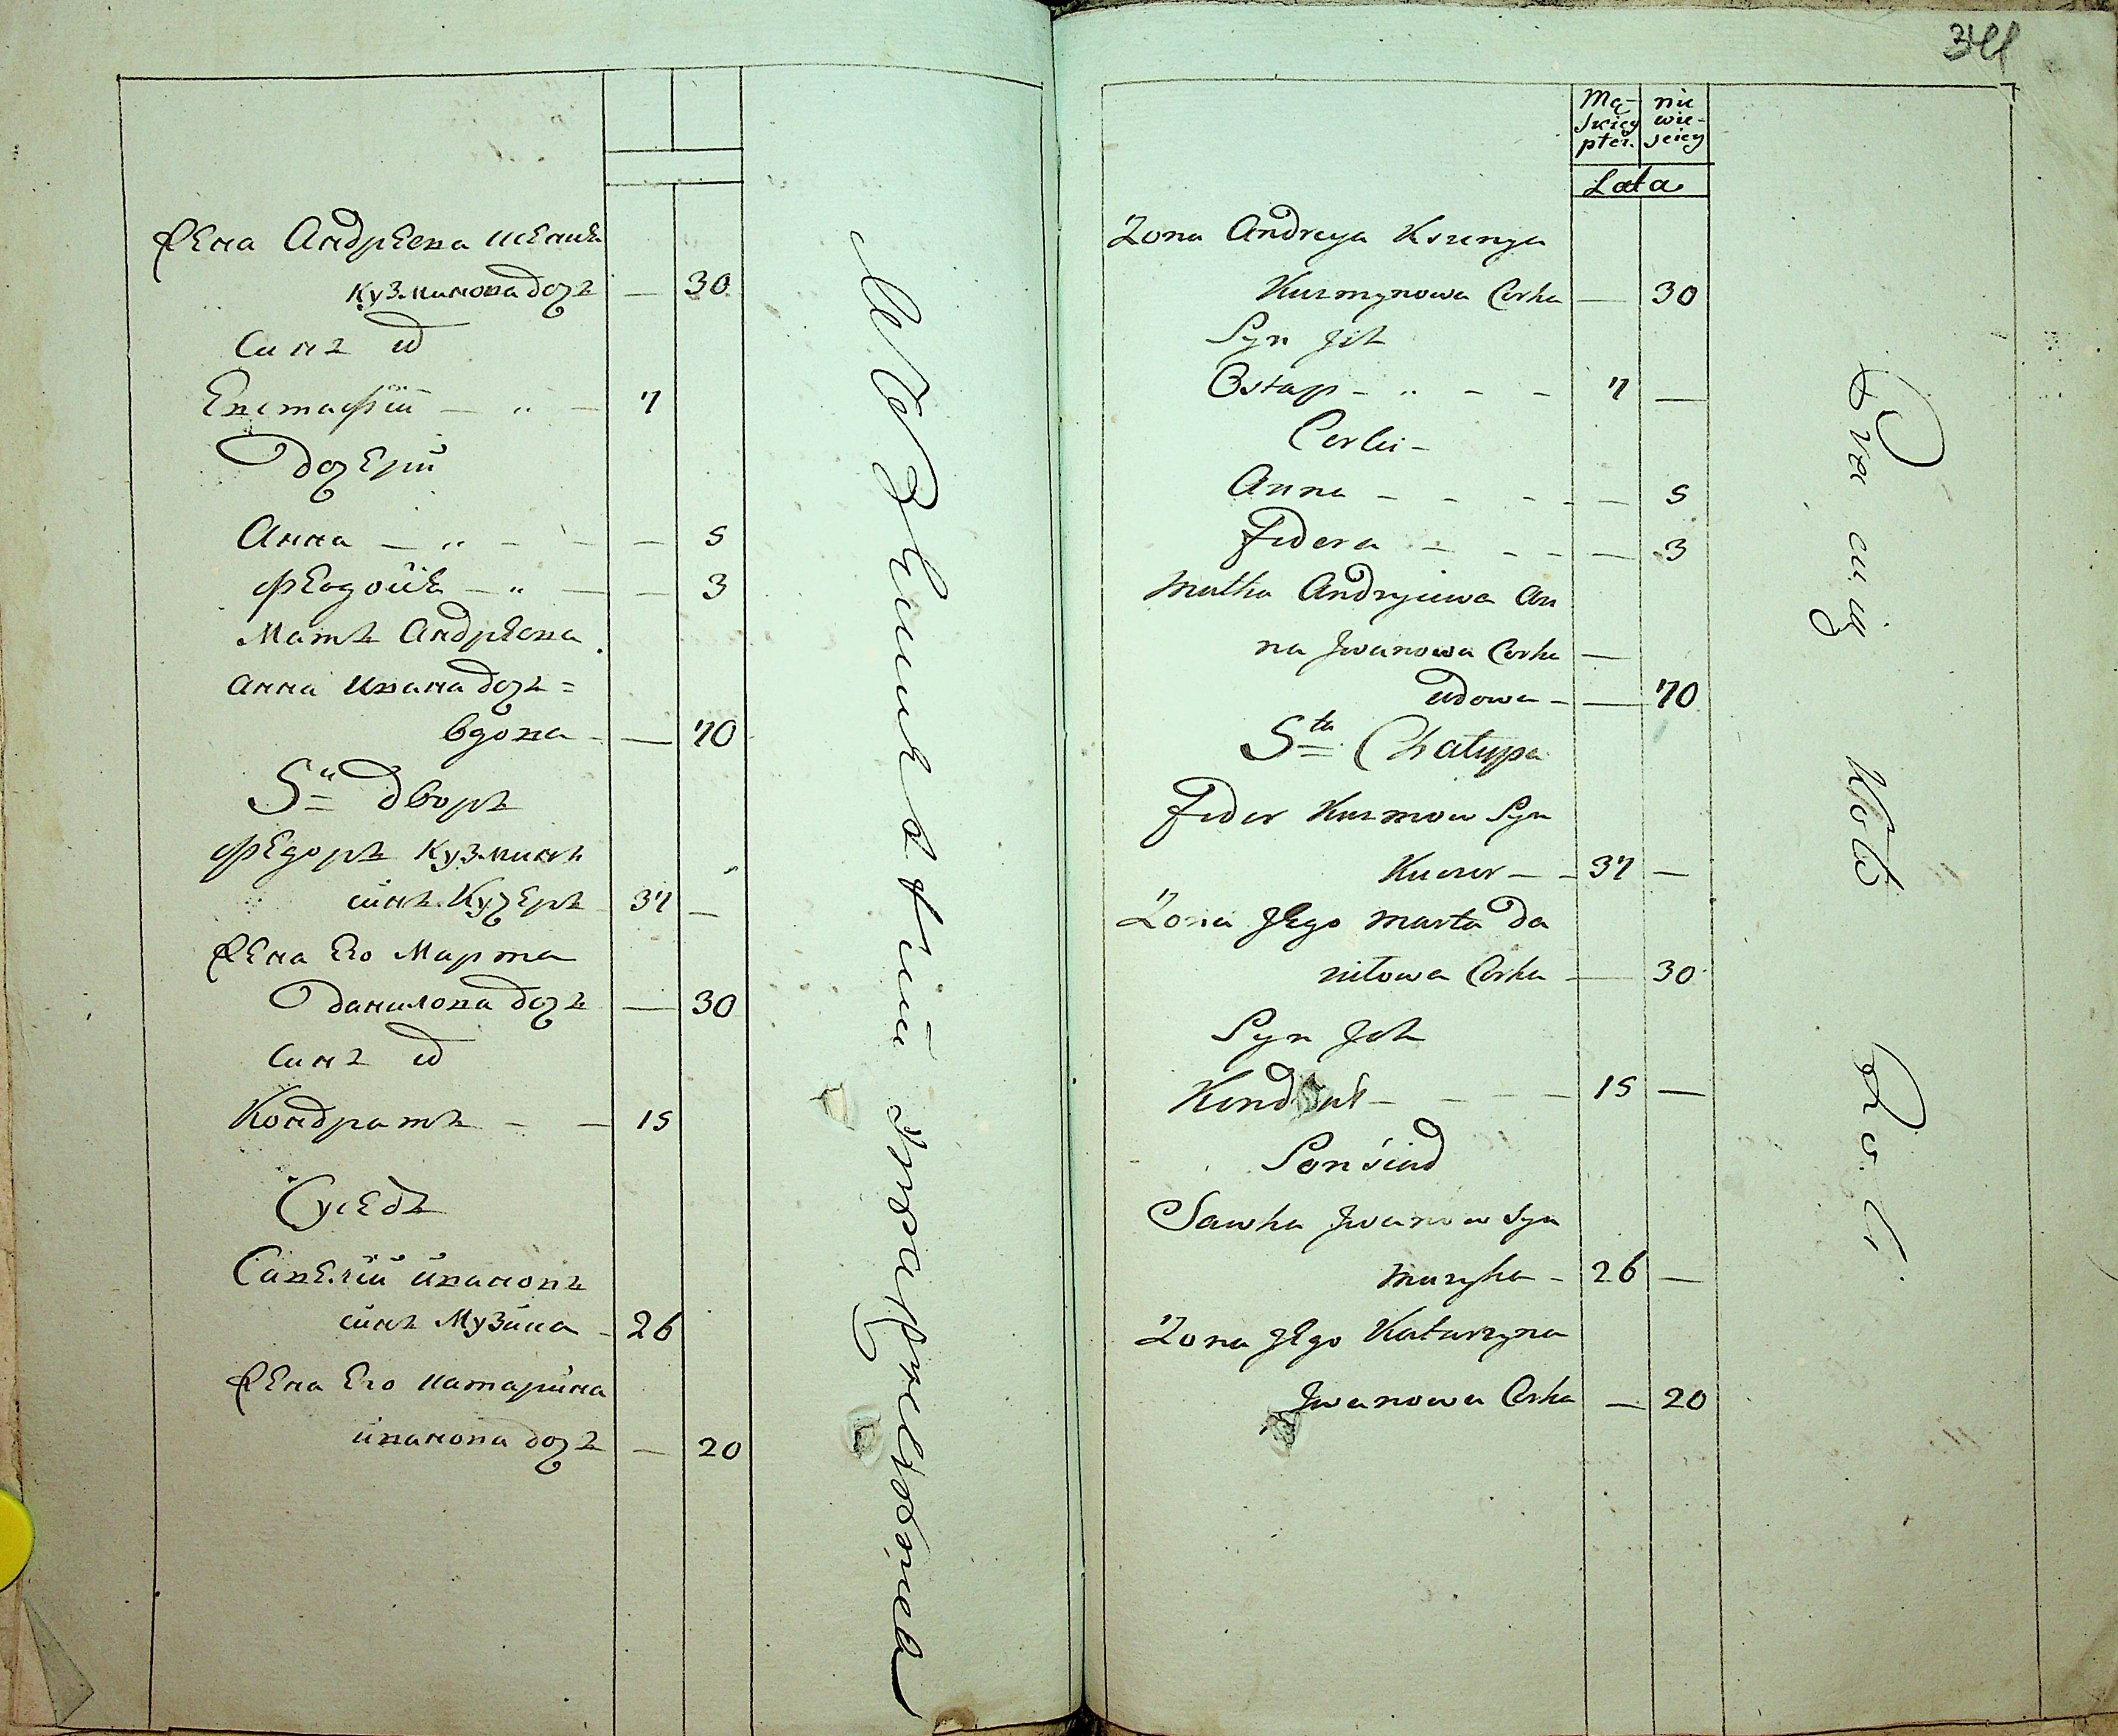 Жена Андреева Ксения
Кузминова дочь — 30
Синъ ихъ
Евстафiй — „ — 7
Дочерiй
Анна — „ — — 5
Федоля — „ — — 3
Мать Андреева
Анна Ивана дочь =
вдова — — 70
5й дворъ
Федоръ Кузминъ
синъ Кучеръ 37 —
Жена Его Марта
Данилова дочь — 30
Синъ ихъ
Кондратъ — — 15
Суседъ
Савелiй Ивановъ
синъ Музика — 26
Жена Его Катарина
Иванова дочь — 20
341
Mę- nie
skiey wie-
płci. sciey
Lata
Zona Andreya Ksienya
Kuzmynowa Corka — 30
Syn Jch
Ostap — „ — — 7 —
Corki —
Anna — — — — 5
Fedora — — — — 3
Matka Andryiewa An
na Jwanowa Corka —
udowa — — 70
5ta Chałupa
Feder Kuzmow Syn
Kuczer — — 37 —
Zona Jego Marta Da
niłowa Corka — 30
Syn Jch
Kondrat — — — — 15 —
Sonsiad
Sawka Jwanow Syn
Muzyka — 26 —
Zona Jego Katarzyna
Jwanowa Corka — 20